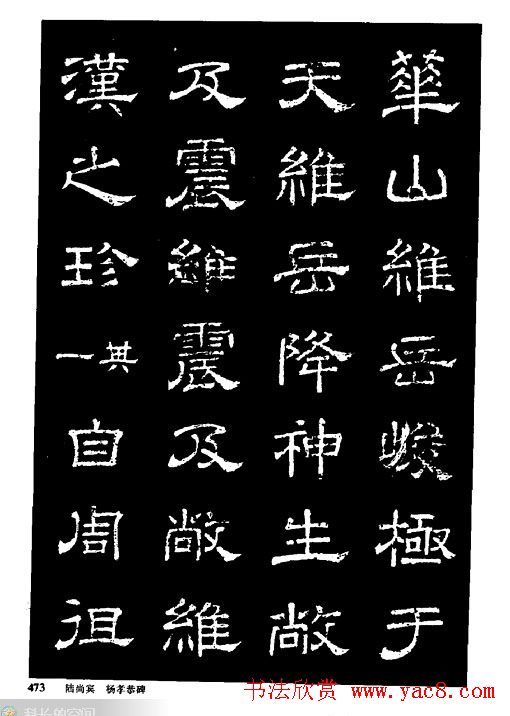 華山維岳峻極于
天維岳降神生敞
及震維震及敞維
漢之珍其一自周徂
473 陆尚宾 杨孝恭碑
书法欣赏 www.yac8.com